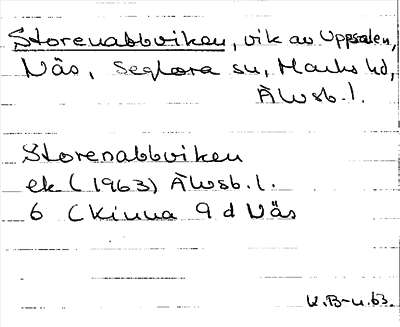 Storenabbviken, vik av Uppsalen,
Näs, Seglora sn, Marks hd,
Älvsb. l.
Storenabbviken
ek (1963) Älvsb. l.
6 (Kinna 9 d Näs
K.B-n.63.